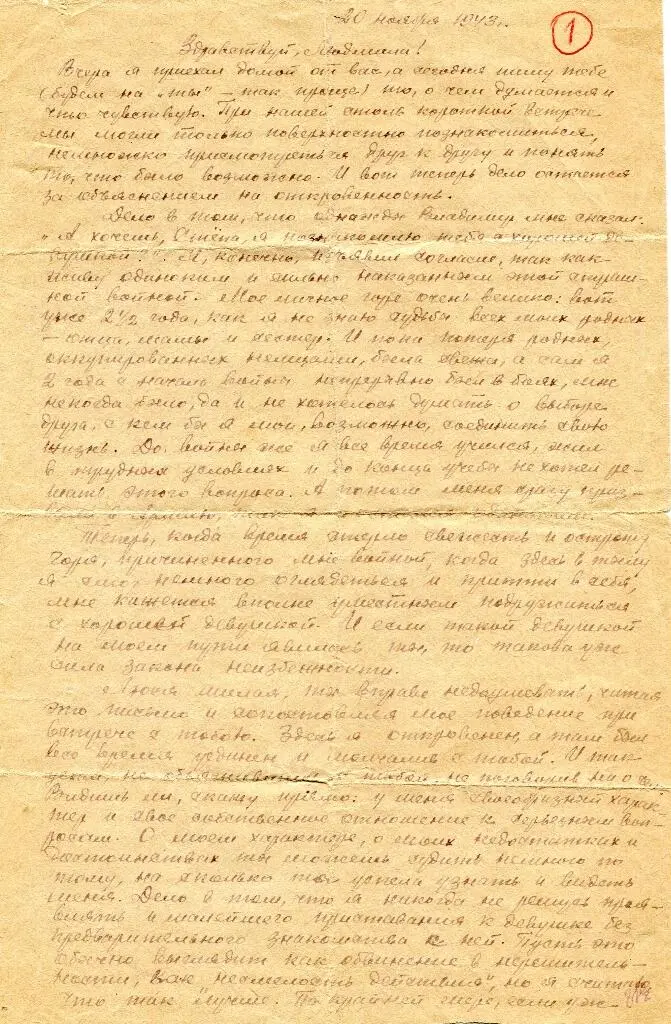 20 ноября 1943 г.
1
Здравствуй, Людмила!
Вчера я приехал домой от вас, а сегодня пишу тебе
(будем на „ты" – так проще) то, о чем думается и
что чувствую. При нашей столь короткой встрече
мы могли только поверхностно познакомиться,
немножко присмотреться друг к другу и понять
то, что было возможно. И вот теперь дело остается
за объяснением на откровенность.
Дело в том, что однажды Владимир мне сказал:
„А хочешь, Стёпа, я познакомлю тебя с хорошей де-
вушкой?". Я, конечно, изъявил согласие, так как
живу одиноким и сильно наказанным этой страш-
ной войной. Мое личное горе очень велико: вот
уже 2½ года, как я не знаю судьбы всех моих родных
– отца, мамы и сестер. И пока потеря родных,
оккупированных немцами, была свежа, а сам я
2 года с начала войны непрерывно был в боях, мне
некогда было, да и не хотелось думать о выборе
друга, с кем бы я мог, возможно, соединить свою
жизнь. До войны же я все время учился, жил
в трудных условиях и до конца учебы не хотел ре-
шать этого вопроса. А потом меня сразу приз-
вали в Армию,
Теперь, когда время стерло свежесть и остроту
горя, причиненного мне войной, когда здесь в тылу
я смог немного оглядеться и притти в себя,
мне кажется вполне уместным подружиться
с хорошей девушкой. И если такой девушкой
на моем пути явилась ты, то такова уж
сила закона неизбежности.
Люся милая, ты вправе недоумевать, читая
это письмо и сопоставляя мое поведение при
встрече с тобою. Здесь я откровенен, а там был
все время уединен и молчалив с тобой. И так
уехал, не объяснившись с тобой, не поговорив ни о
Видишь ли, скажу прямо: у меня своеобразный харак-
тер и свое собственное отношение к серьезным воп-
росам. О моем характере, о моих недостатках и
достоинствах ты можешь судить немного по
тому, на сколько ты успела узнать и видеть
меня. Дело в том, что я никогда не решусь проя-
влять и малейшего приставания к девушке без
предварительного знакомства с ней. Пусть это
обычно выглядит как обвинение в нерешитель-
ности, как „несмелость действия", но я считаю,
что так лучше. По крайней мере, если уж